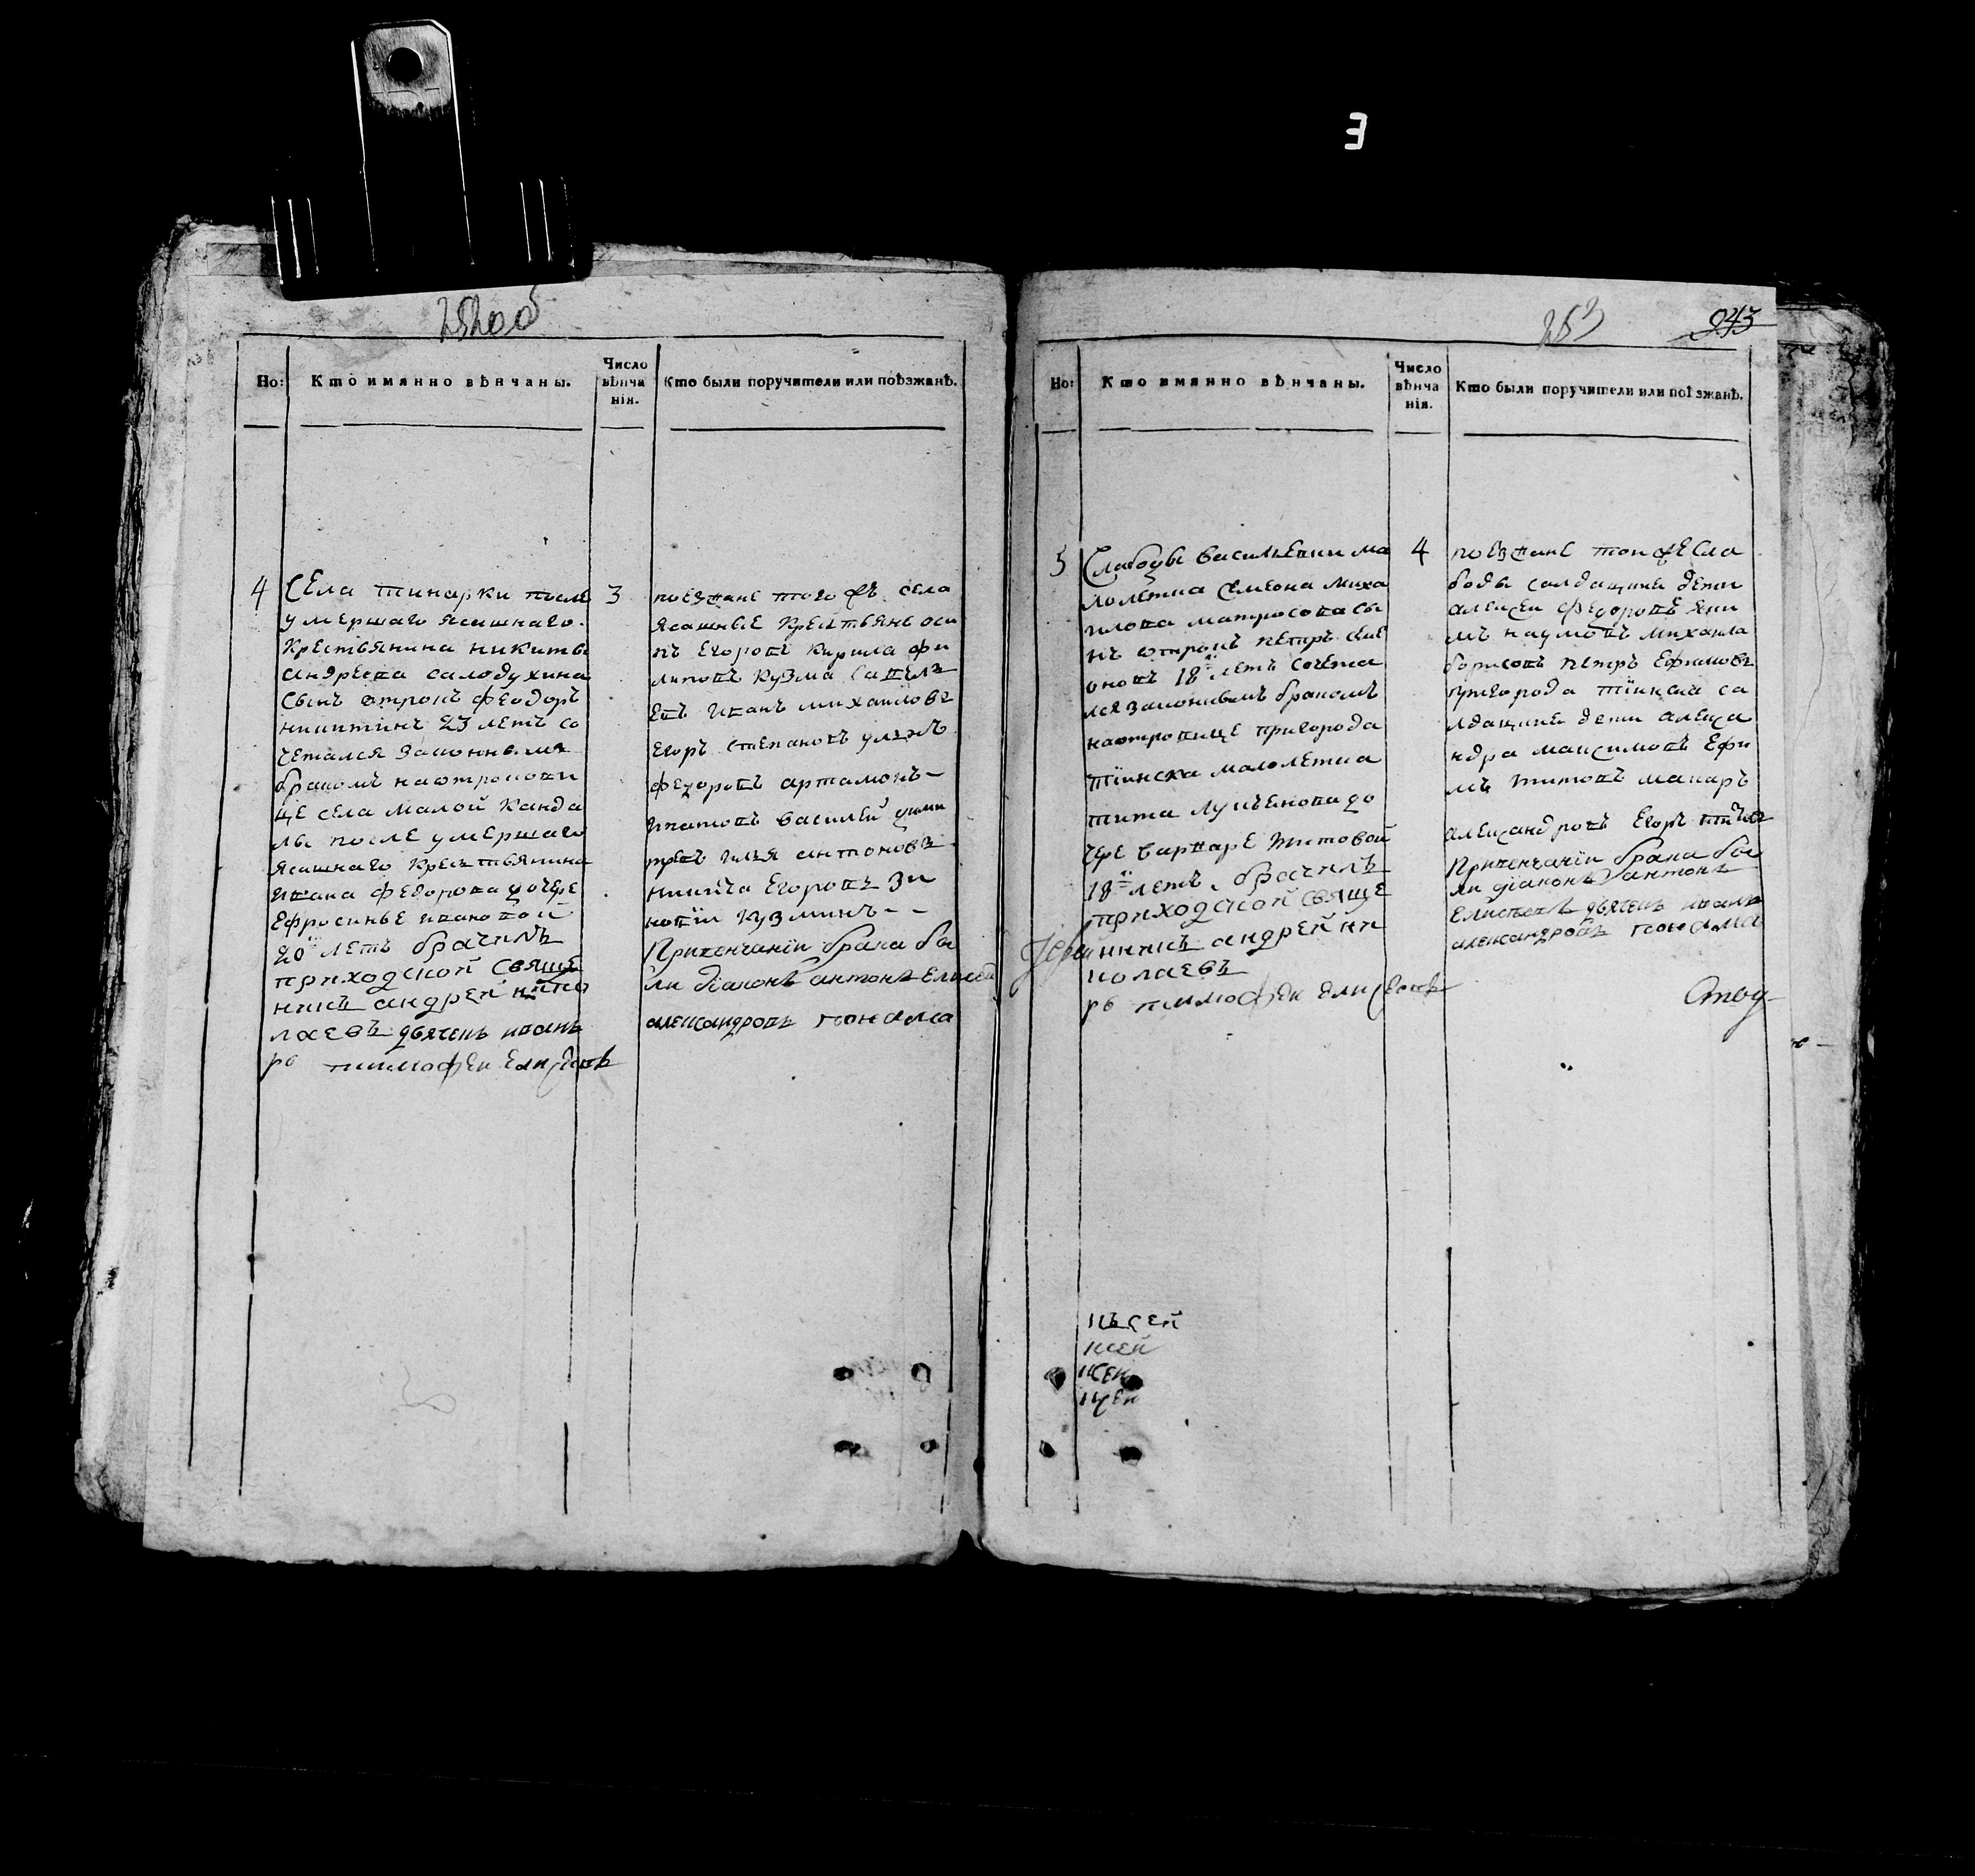 3
252 об
Но:
Кто имянно вѣнчаны.
Число вѣнча нія.
Кто были поручители или поѣзжанѣ.
4
Села тинарки после
умершаго ясашнаго
крестьянина никиты
андреева салодухина
сынъ отрокъ феодоръ
никитинъ 23 летъ со
четался законнымъ
бракомъ наотрокови
це села малой канда
лы после умершаго
ясашнаго крестьянина
ивана федорова дочере
Ефросинье ивановой
20 летъ брачилъ
приходской свяще
нникъ андрей нико
лаевъ дьячекъ иванъ
рь тимофей Елисеевъ
3
поезжане того жъ села
ясашные крестьяне оси
пъ Егоровъ кирила фи
липовъ кузма савелъ
евъ иванъ михаиловъ
Егоръ степановъ
федоровъ артамонъ
игнатовъ василей дими
треевъ илья антоновъ
никита Егоровъ зи
новїи кузминъ
Привенчанїи брака бы
ли дїаконъ антонъ Елисеев
александровъ понама
253
243
Но:
Кто имянно вѣнчаны.
Число вѣнча нія.
Кто были поручители или поѣзжанѣ.
5
Слабоды васильевки ма
лолетка семеона миха
илова матросова сы
нъ отрокъ петръ семе
оновъ 18 летъ сочета
лся законнымъ бракомъ
наотроковице пригорода
тїинска малолетка
тита лукъенова до
чере варваре титовой
18 летъ брачилъ
приходской свяще
Іерей нникъ андрей ни
колаевъ
рь тимофей Елисеевъ
4
поезжане тойже сла
боды салдацкие дети
алексей федоровъ яки
мъ наумовъ михаила
борисовъ петръ Ефимовъ
пригорода тїинска са
лдацкие дети алекса
ндра максимовъ Ефи
мъ титовъ макаръ
александровъ Егоръ титовъ
Привенчанїи брака бы
ли дїаконъ антонъ
Елисеевъ дьячекъ иванъ
александровъ понама